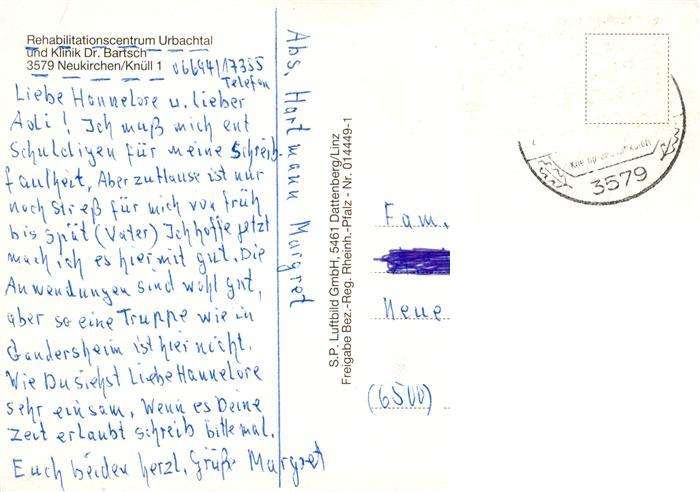 Rehabilitationscentrum Urbachtal
und Klinik Dr. Bartsch
3579 Neukirchen/Knüll 1
06694/17335
Telefon
Liebe Hannelore u. lieber
Adi! Ich muß mich ent
Schuldigen für meine Schreib-
faulheit, Aber zu Hause ist nur
noch Streß für mich von früh
bis spät (Vater) Ich hoffe jetzt
mach ich es hiermit gut. Die
Anwendungen sind wohl gut,
aber so eine Truppe wie in
Gandersheim ist hier nicht.
Wie Du siehst Liebe Hannelore
sehr einsam. Wenn es Deine
Zeit erlaubt schreib bitte mal.
Euch beiden herzl. Grüße Margret
Abs. Hartmann Margret
S.P. Luftbild GmbH, 5461 Dattenberg/Linz
Freigabe Bez.-Reg. Rheinh.-Pfalz - Nr. 014449-1
3579
Fam.
Neue
(6500)